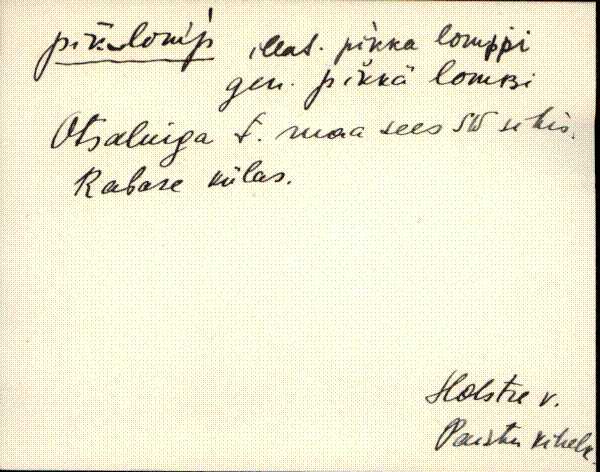 pik̆k-lom'p illat. pikka lomppi
gen. pikkä lombi
Otsaluiga t. maa sees SW
Rabase külas.
Holstre v.
Paistu kihelk.